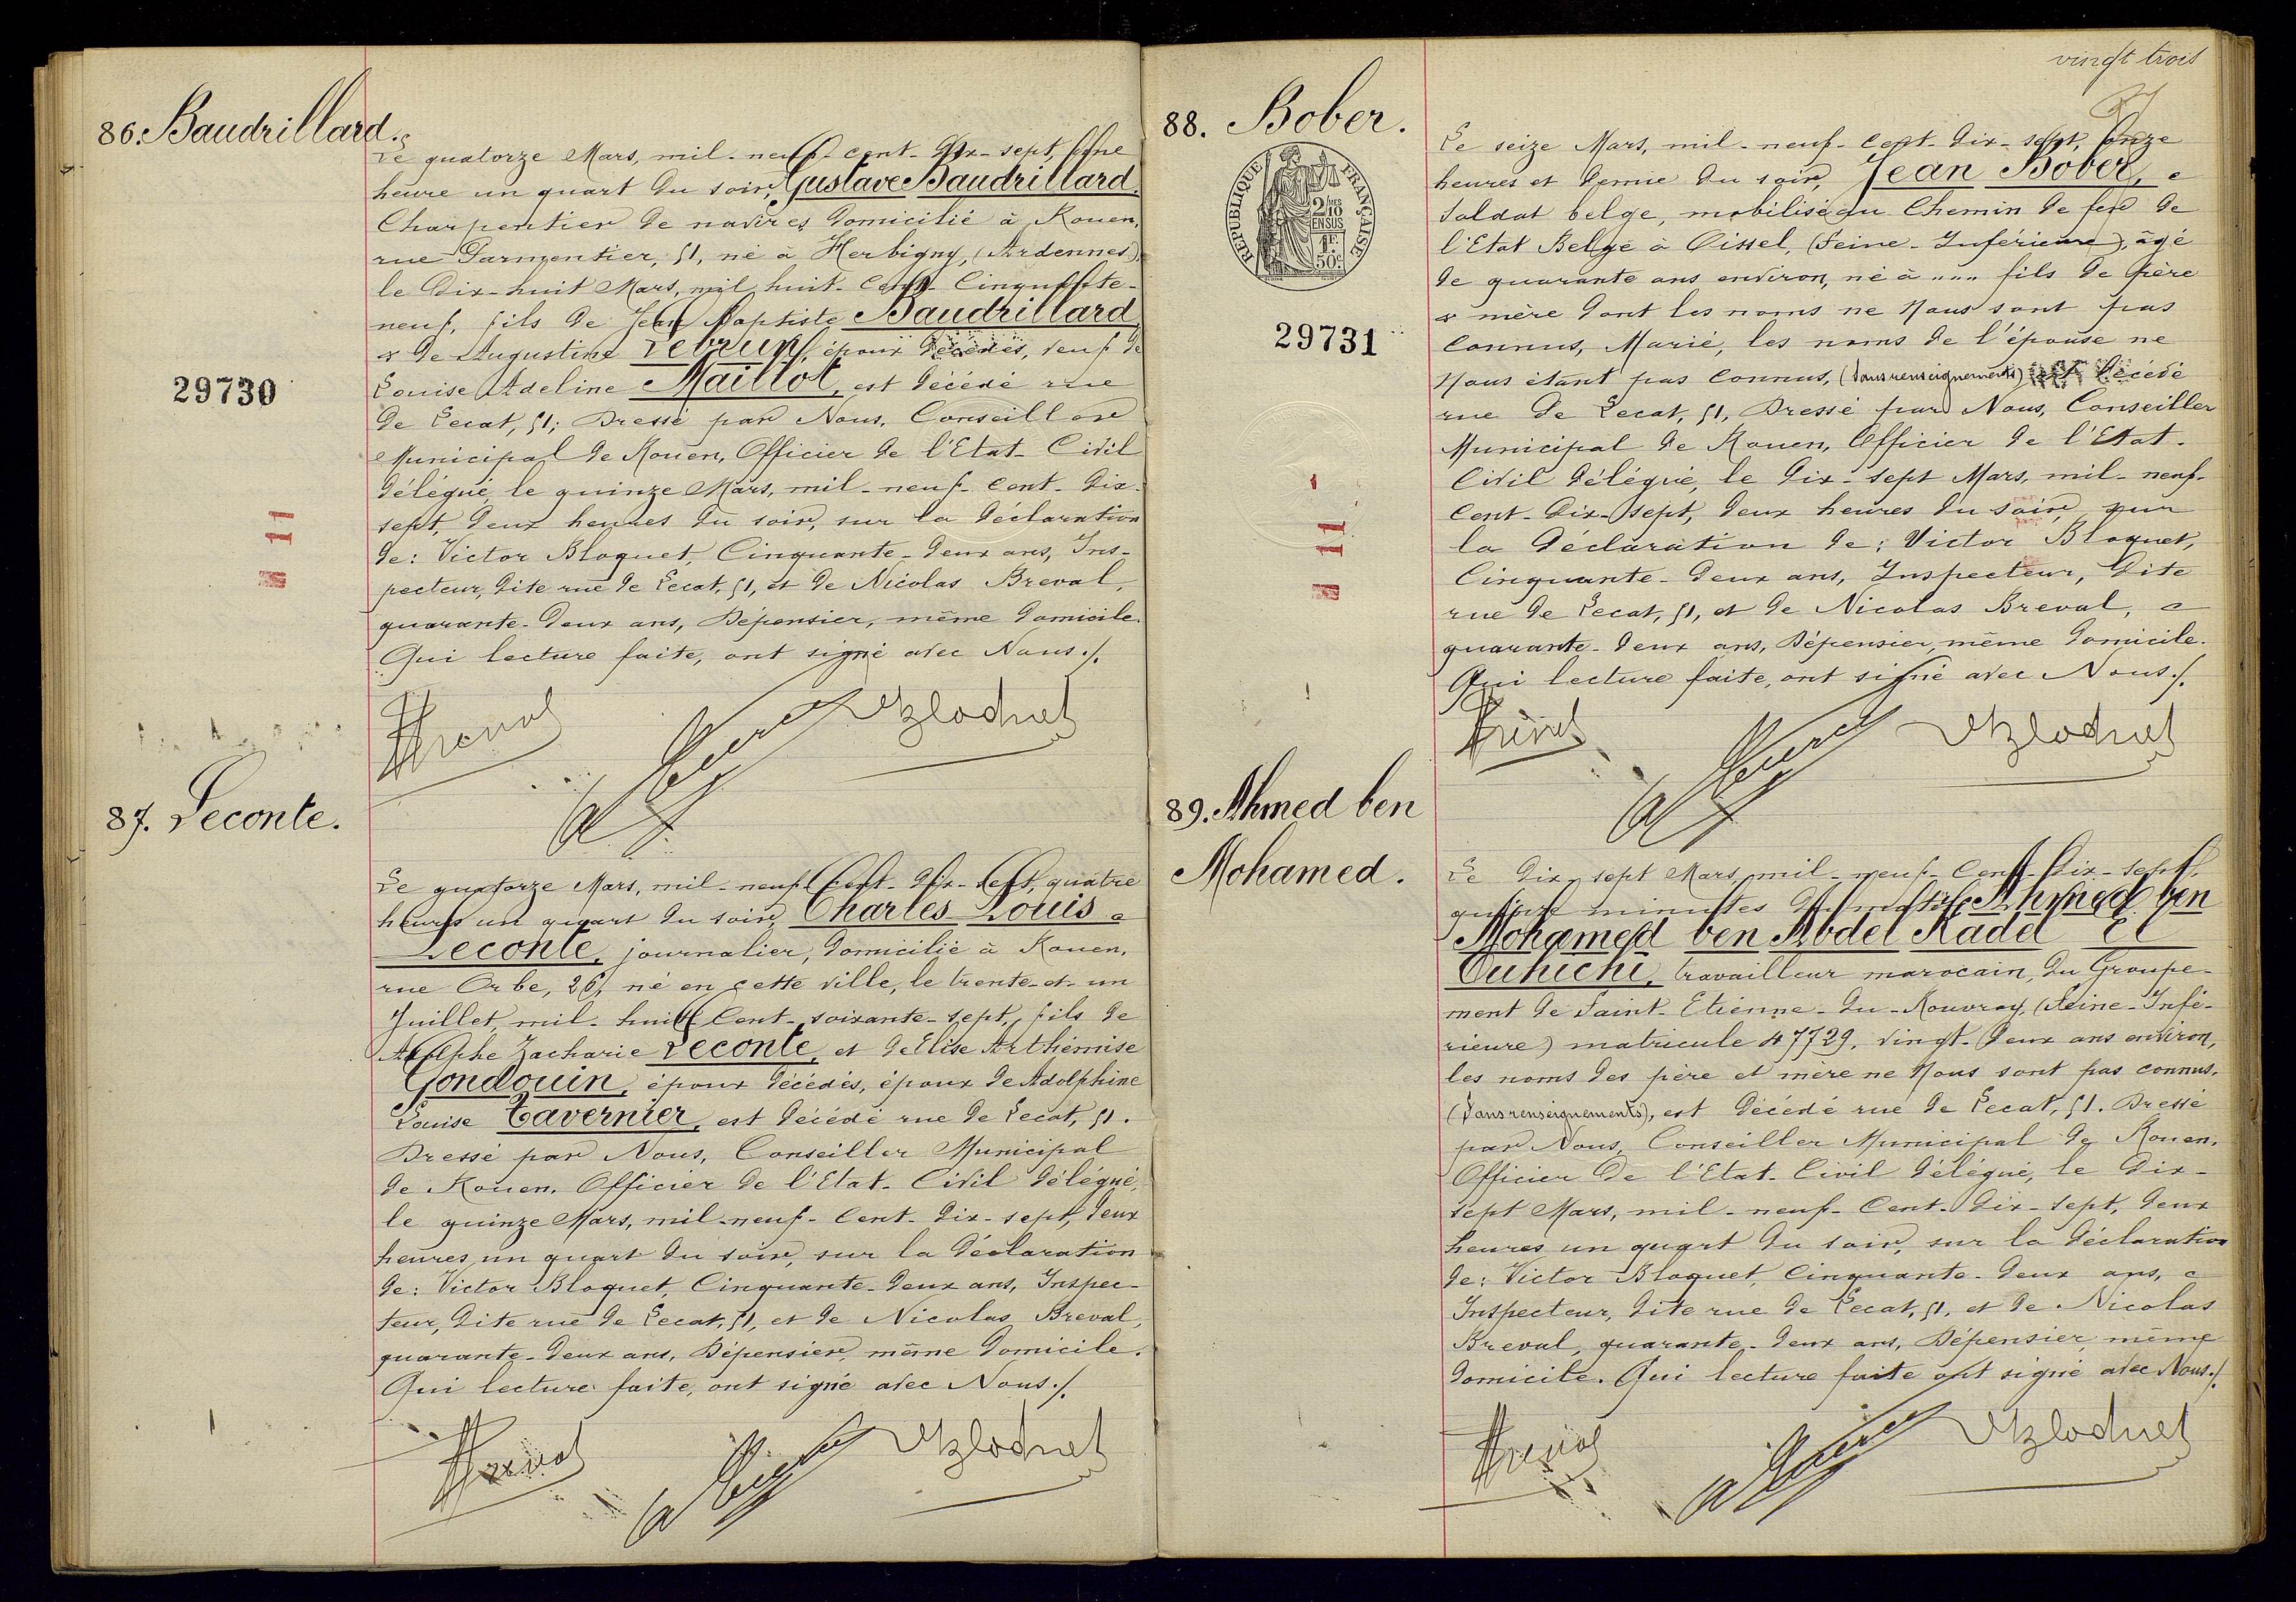 86. Baudrillard.
Le quatorze Mars, mil-neuf-cent-dix-sept, une
heure un quart du soir, Gustave Baudrillard,
Charpentier de navires domicilié à Rouen,
rue Parmentier, 51, né à Herbigny, (Ardennes),
le dix-huit Mars, mil huit-cent-Cinquante-
neuf, fils de Jean Baptiste Baudrillard
& de Augustine Lebrun, époux décédés, veuf de
Louise Adeline Maillot, est décédé rue
de Lecat, 51; Dressé par Nous, Conseiller
Municipal de Rouen, Officier de l'Etat-Civil
délégué, le quinze Mars, mil-neuf-cent-dix-
sept, deux heures du soir, sur la déclaration
de: Victor Bloquet, Cinquante-deux ans, Ins-
pecteur, dite rue de Lecat, 51, et de Nicolas Breval,
quarante-deux ans, Dépensier, même domicile.
Qui lecture faite, ont signé avec Nous./.
29730
11
87. Leconte.
Le quatorze Mars, mil-neuf-Cent-dix-sept, quatre
heures un quart du soir, Charles Louis
Leconte, journalier, domicilié à Rouen,
rue Orbe, 26, né en cette ville, le trente-et-un
Juillet, mil-huit Cent-soixante-sept, fils de
Adolphe Zacharie Leconte, et de Elise Arthémise
Gondouin, époux décédés, époux de Adolphine
Louise Tavernier, est décédé rue de Lecat, 51.
Dressé par Nous, Conseiller Municipal
de Rouen, Officier de l'Etat-Civil délégué,
le quinze Mars, mil-neuf-Cent-dix-sept, deux
heures un quart du soir, sur la déclaration
de: Victor Bloquet, Cinquante-deux ans, Inspec-
teur, dite rue de Lecat, 51, et de Nicolas Breval,
quarante-deux ans, Dépensier, même domicile.
Qui lecture faite, ont signé avec Nous./.
vingt trois
88. Bober.
REPUBLIQUE FRANÇAISE
2/10 EN SUS
1F. 50C
29731
11
Le seize Mars, mil-neuf-cent-dix-sept, onze
heures et demie du soir, Jean Bober,
Soldat belge, mobilisé au Chemin de fer de
l'Etat Belge à Oissel, (Seine-Inférieure), âgé
de quarante ans environ, né à """ fils de père
& mère dont les noms ne Nous sont pas
Connus, Marié, les noms de l'épouse ne
Nous étant pas Connus, (sans renseignements) est décédé
rue de Lecat, 51, Dressé par Nous, Conseiller
Municipal de Rouen, Officier de l'Etat-
Civil délégué, le dix-sept Mars, mil-neuf-
Cent-dix-sept, deux heures du soir, sur
la déclaration de: Victor Bloquet,
Cinquante-deux ans, Inspecteur, dite
rue de Lecat, 51, et de Nicolas Breval,
quarante-deux ans, Dépensier, même domicile.
Qui lecture faite, ont signé avec Nous./.
89. Ahmed ben
Mohamed.
Le dix-sept Mars, mil-neuf-Cent-dix-sept,
quinze minutes du matin, Ahmed ben
Mohamed ben Abdel Kadel El
Ouhichi, travailleur marocain, du Groupe-
ment de Saint-Etienne-du-Rouvray, (Seine-Infé-
rieure) matricule 47729, vingt-deux ans environ,
les noms des père et mère ne Nous sont pas connus,
(sans renseignements), est décédé rue de Lecat, 51. Dressé
par Nous, Conseiller Municipal de Rouen,
Officier de l'Etat-Civil délégué, le dix-
sept Mars, mil-neuf-Cent-dix-sept, deux
heures un quart du soir, sur la déclaration
de: Victor Bloquet, Cinquante-deux ans,
Inspecteur, dite rue de Lecat, 51, et de Nicolas
Breval, quarante-deux ans, Dépensier, même
domicile. Qui lecture faite ont signé avec Nous./.